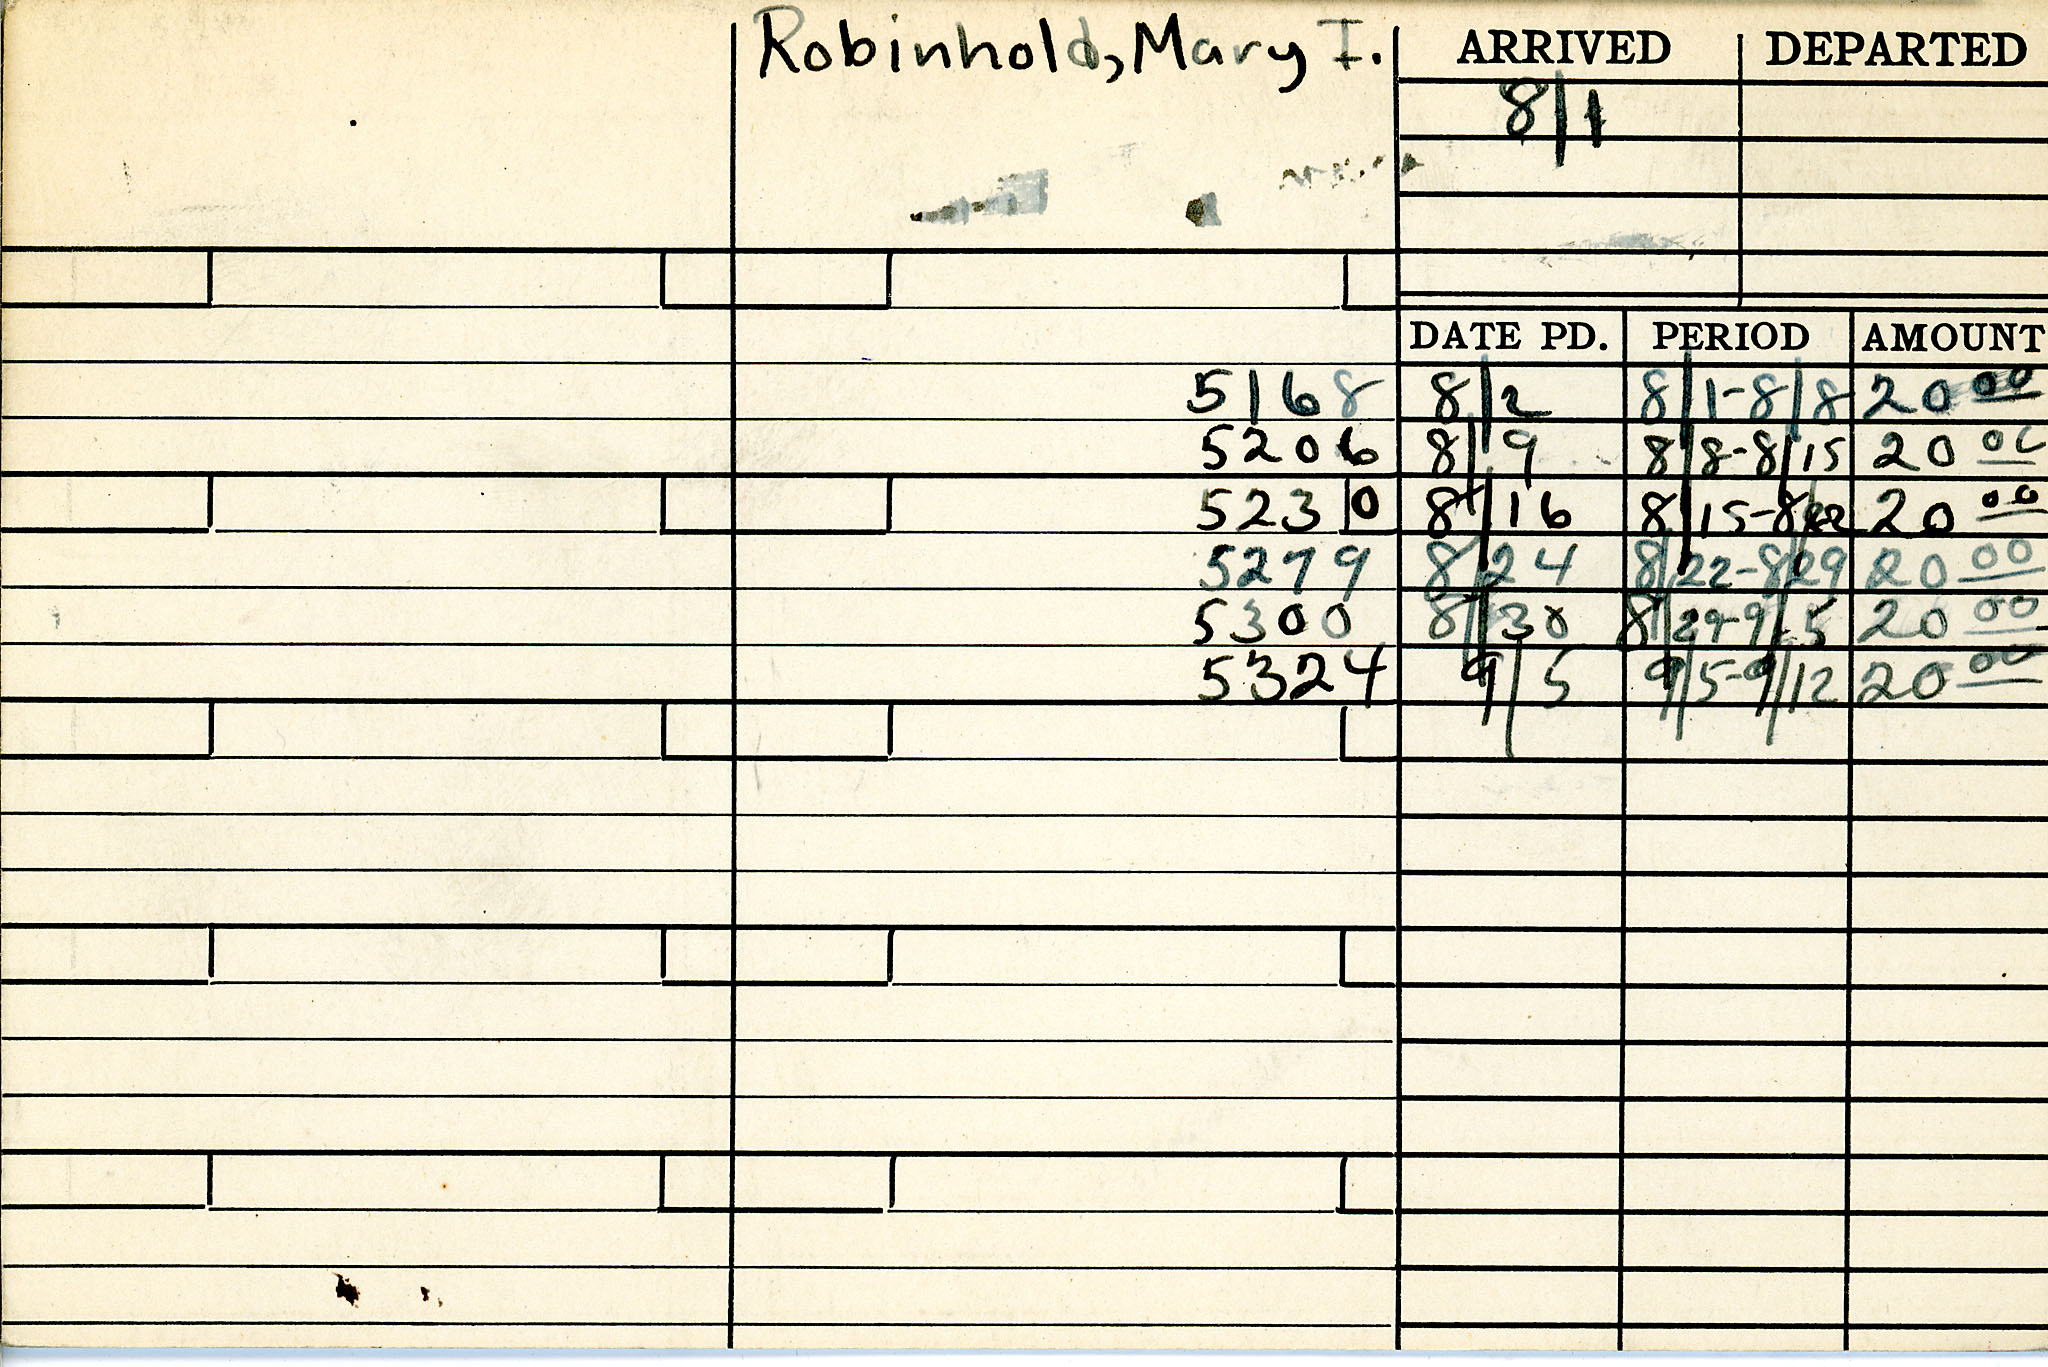 Robinhold, Mary I. ARRIVED DEPARTED
8/1
DATE PD. PERIOD AMOUNT
5168 8/2 8/1-8/8 20 00
5206 8/9 8/8-8/15 20 00
5230 8/16 8/15-8/22 20 00
5279 8/24 8/22-8/29 20 00
5300 8/30 8/29-9/5 20 00
5324 9/5 9/5-9/12 20 00